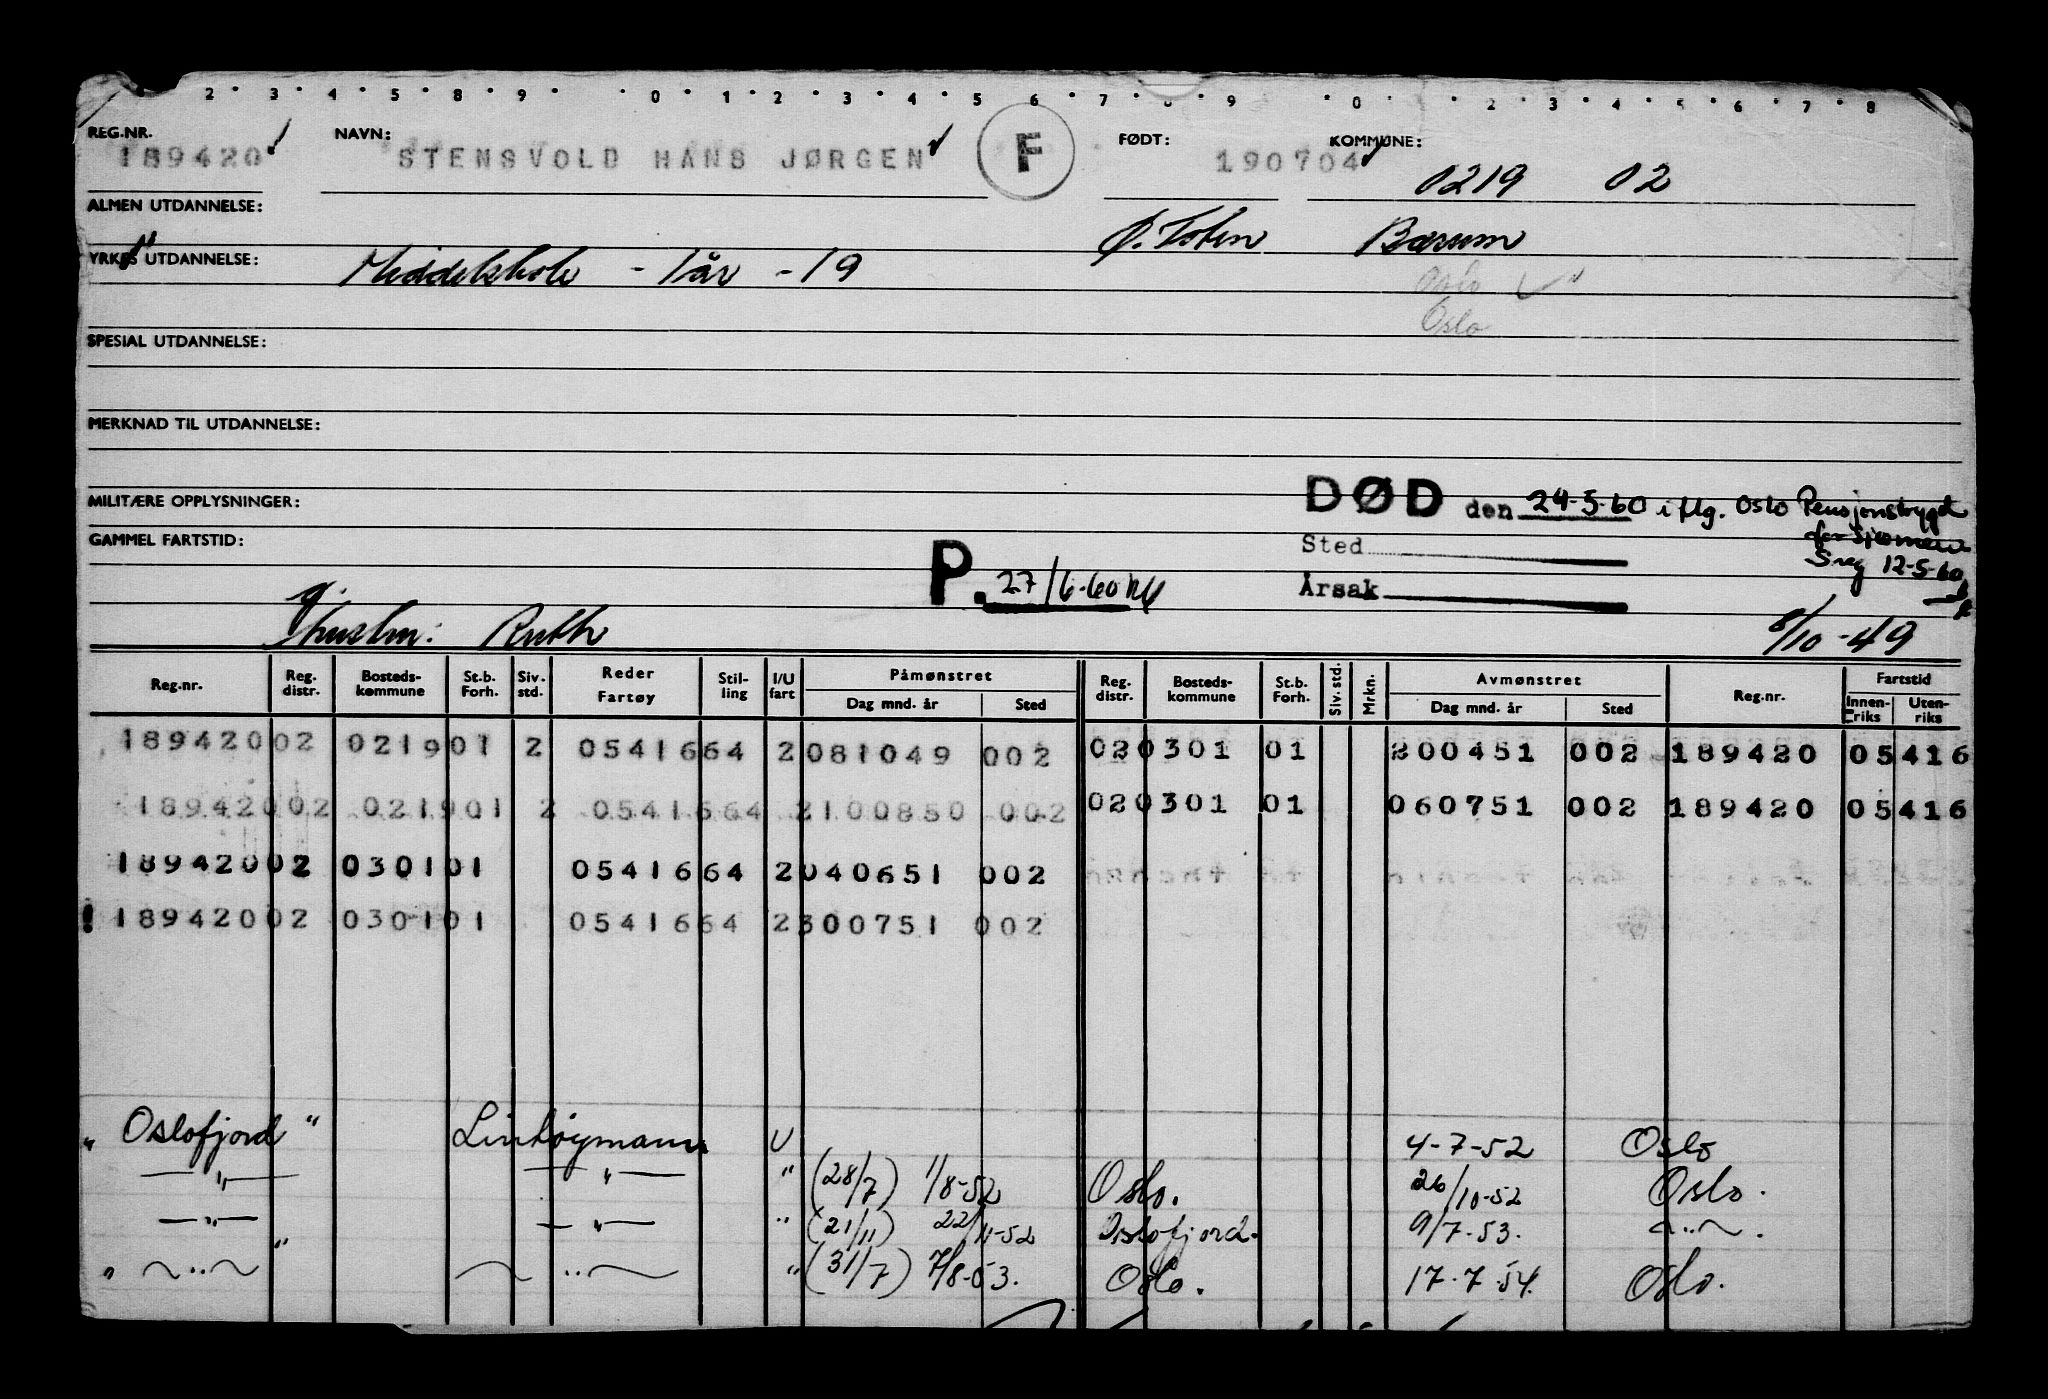 2 · 3 · 4 · 5 · 8 · 9 · · 0 · 1 · 2 · 3 · 4 · 5 · 6 · 7 · 8 · 9 · 0 · · 2 · 3 · 4 · 5 · 6 · 7 · 8
REG.NR. NAVN: FØDT: KOMMUNE:
189420 STENSVOLD HANS JØRGEN F 190704 0219 02
ALMEN UTDANNELSE: Ø. Toten Bærum
YRKES UTDANNELSE: Middelskole - 1 år - 19
Oslo
Oslo
SPESIAL UTDANNELSE:
MERKNAD TIL UTDANNELSE:
MILITÆRE OPPLYSNINGER: DØD den 24-5-60 iflg. Oslo Pensjonstrygd
for sjømenn
GAMMEL FARTSTID: Sted
Sreg 12-5-60
P. 27/6-60 Årsak
g. Hustru: Ruth 8/10-49
Reg.nr. Reg. distr. Bosteds-kommune St.b. Forh. Siv. std. Reder Fartøy Stil-ling I/U fart Påmønstret Dag mnd. år Sted Reg. distr. Bosteds-kommune St.b. Forh. Siv. std. Mrkn. Avmønstret Dag mnd. år Sted Reg.nr. Fartstid Innen-riks Uten-riks
189420 02 0219 01 2 05416 64 2 081049 002 02 0301 01 200451 002 189420 05416
189420 02 0219 01 2 05416 64 2 100850 002 02 0301 01 060751 002 189420 05416
189420 02 0301 01 05416 64 2 040651 002
! 189420 02 0301 01 05416 64 2 300751 002
" Oslofjord " Lintøymann U 4-7-52 Oslo
— " — — " — " (28/7) 1/8-52 Oslo. 26/10-52 Oslo.
— " — — " — " (21/11) 22/11-52 Oslofjord. 9/7-53. — " — .
" — " — " — " — " (31/7) 7/8-53. Oslo. 17-7-54. Oslo.